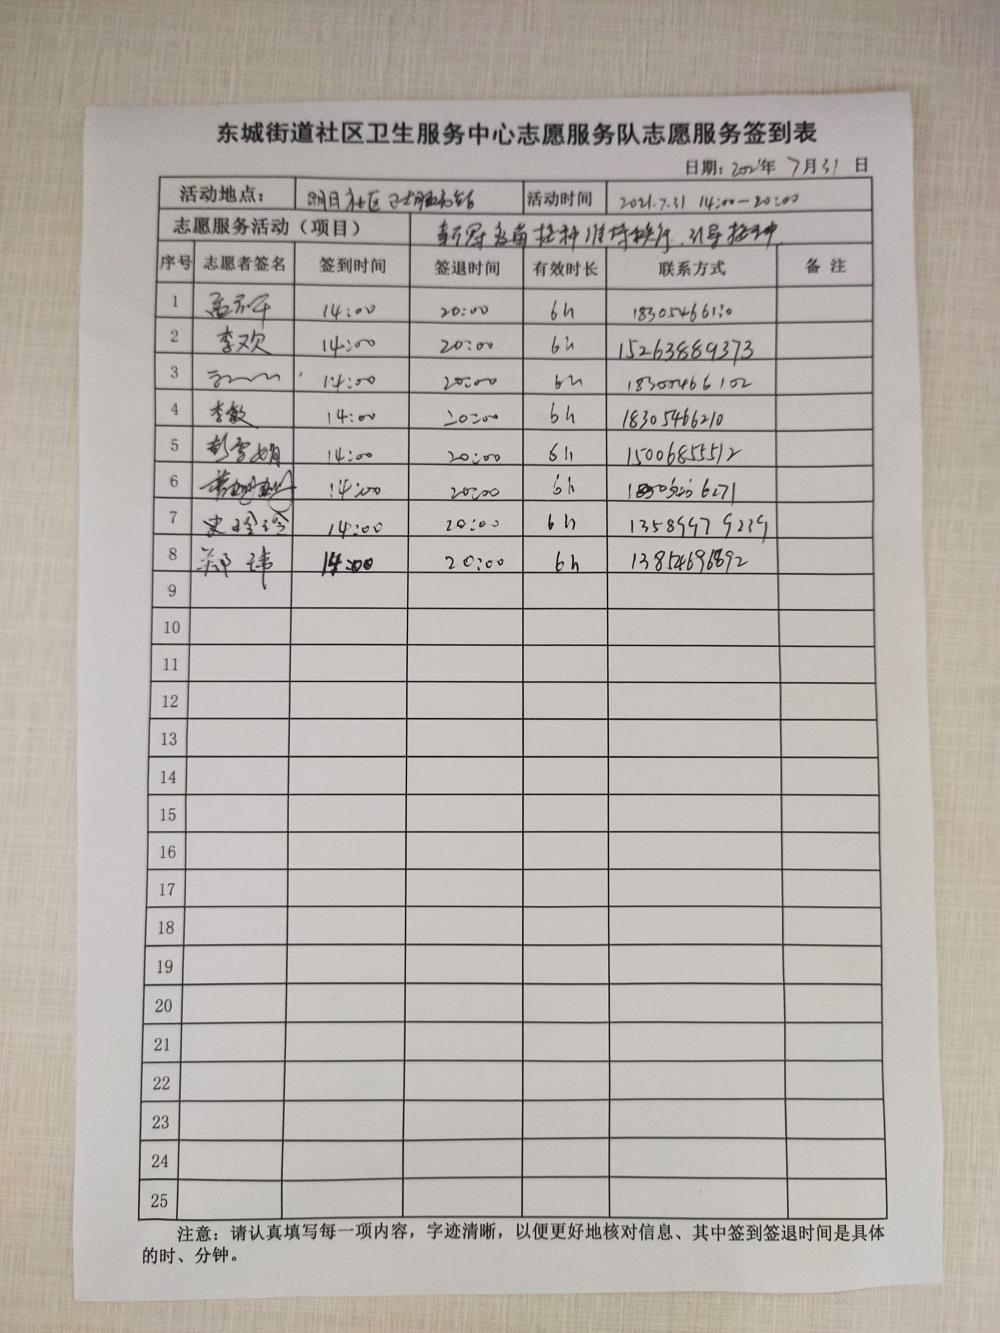 东城街道社区卫生服务中心志愿服务队志愿服务签到表
日期：2021年 7月31 日
活动地点： 明日社区卫生服务站 活动时间 2021.7.31 14:00-20:00
志愿服务活动（项目） 新冠疫苗接种维持秩序、引导接种
序号 志愿者签名 签到时间 签退时间 有效时长 联系方式 备 注
1 14:00 20:00 6h
2 李欢 14:00 20:00 6h 15263889373
3 14:00 20:00 6h
4 李敏 14:00 20:00 6h 18305466210
5 彭雪娟 14:00 20:00 6h 15006855512
6 14:00 20:00 6h
7 史玲玲 14:00 20:00 6h 13589979239
8 郑玮 14:00 20:00 6h 13854696892
9
10
11
12
13
14
15
16
17
18
19
20
21
22
23
24
25
注意：请认真填写每一项内容，字迹清晰，以便更好地核对信息、其中签到签退时间是具体
的时、分钟。